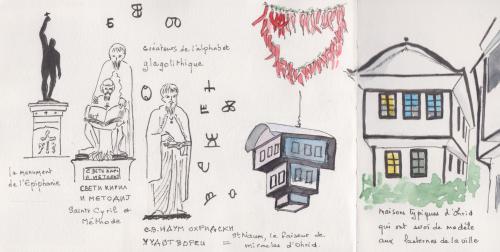 créateurs de l'alphabet
glagolithique
le monument
de l'Epiphanie
СВЕТИ КИРИЛ
И МЕТОДИЈ
СВЕТИ КИРИЛ
И МЕТОДИЈ
Saints Cyril et
Méthode
СВ. НАУМ ОХРИДСКИ
ЧУДОТВОРЕЦ =
St Naum, le faiseur de
miracles d'Ohrid.
maisons typiques d'Ohrid
qui ont servi de modèle
aux lanternes de la ville